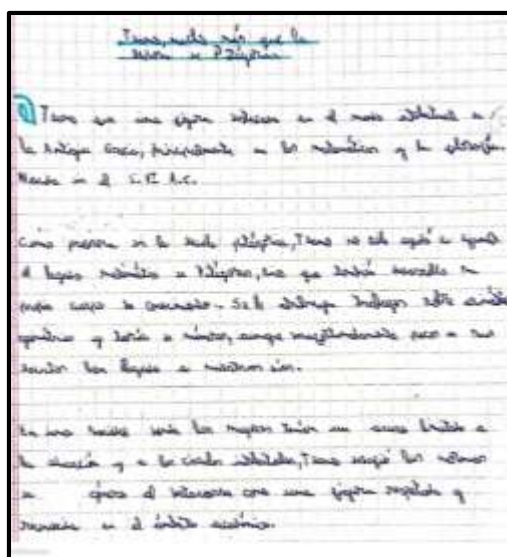 Teano, mucho más que la
de Pitágoras
Teano que una figura en el mundo intelectual de
la Antigua Grecia, principalmente en las matemáticas y la filosofía.
Nacida en el S. VI A.C.
Como en la pitagórica, Teano no solo ayudó a
el legado matemático de Pitágoras, sino que también desarrolló su
propio cuerpo de conocimiento. Se le trabajos sobre
y teoría de números, aunque desafortunadamente pocos de sus
escritos han llegado a nuestros días.
En una sociedad donde las mujeres tenían un acceso limitado a
la educación y a los círculos intelectuales, Teano las normas
de época al como una figura respetada y
en el ámbito académico.